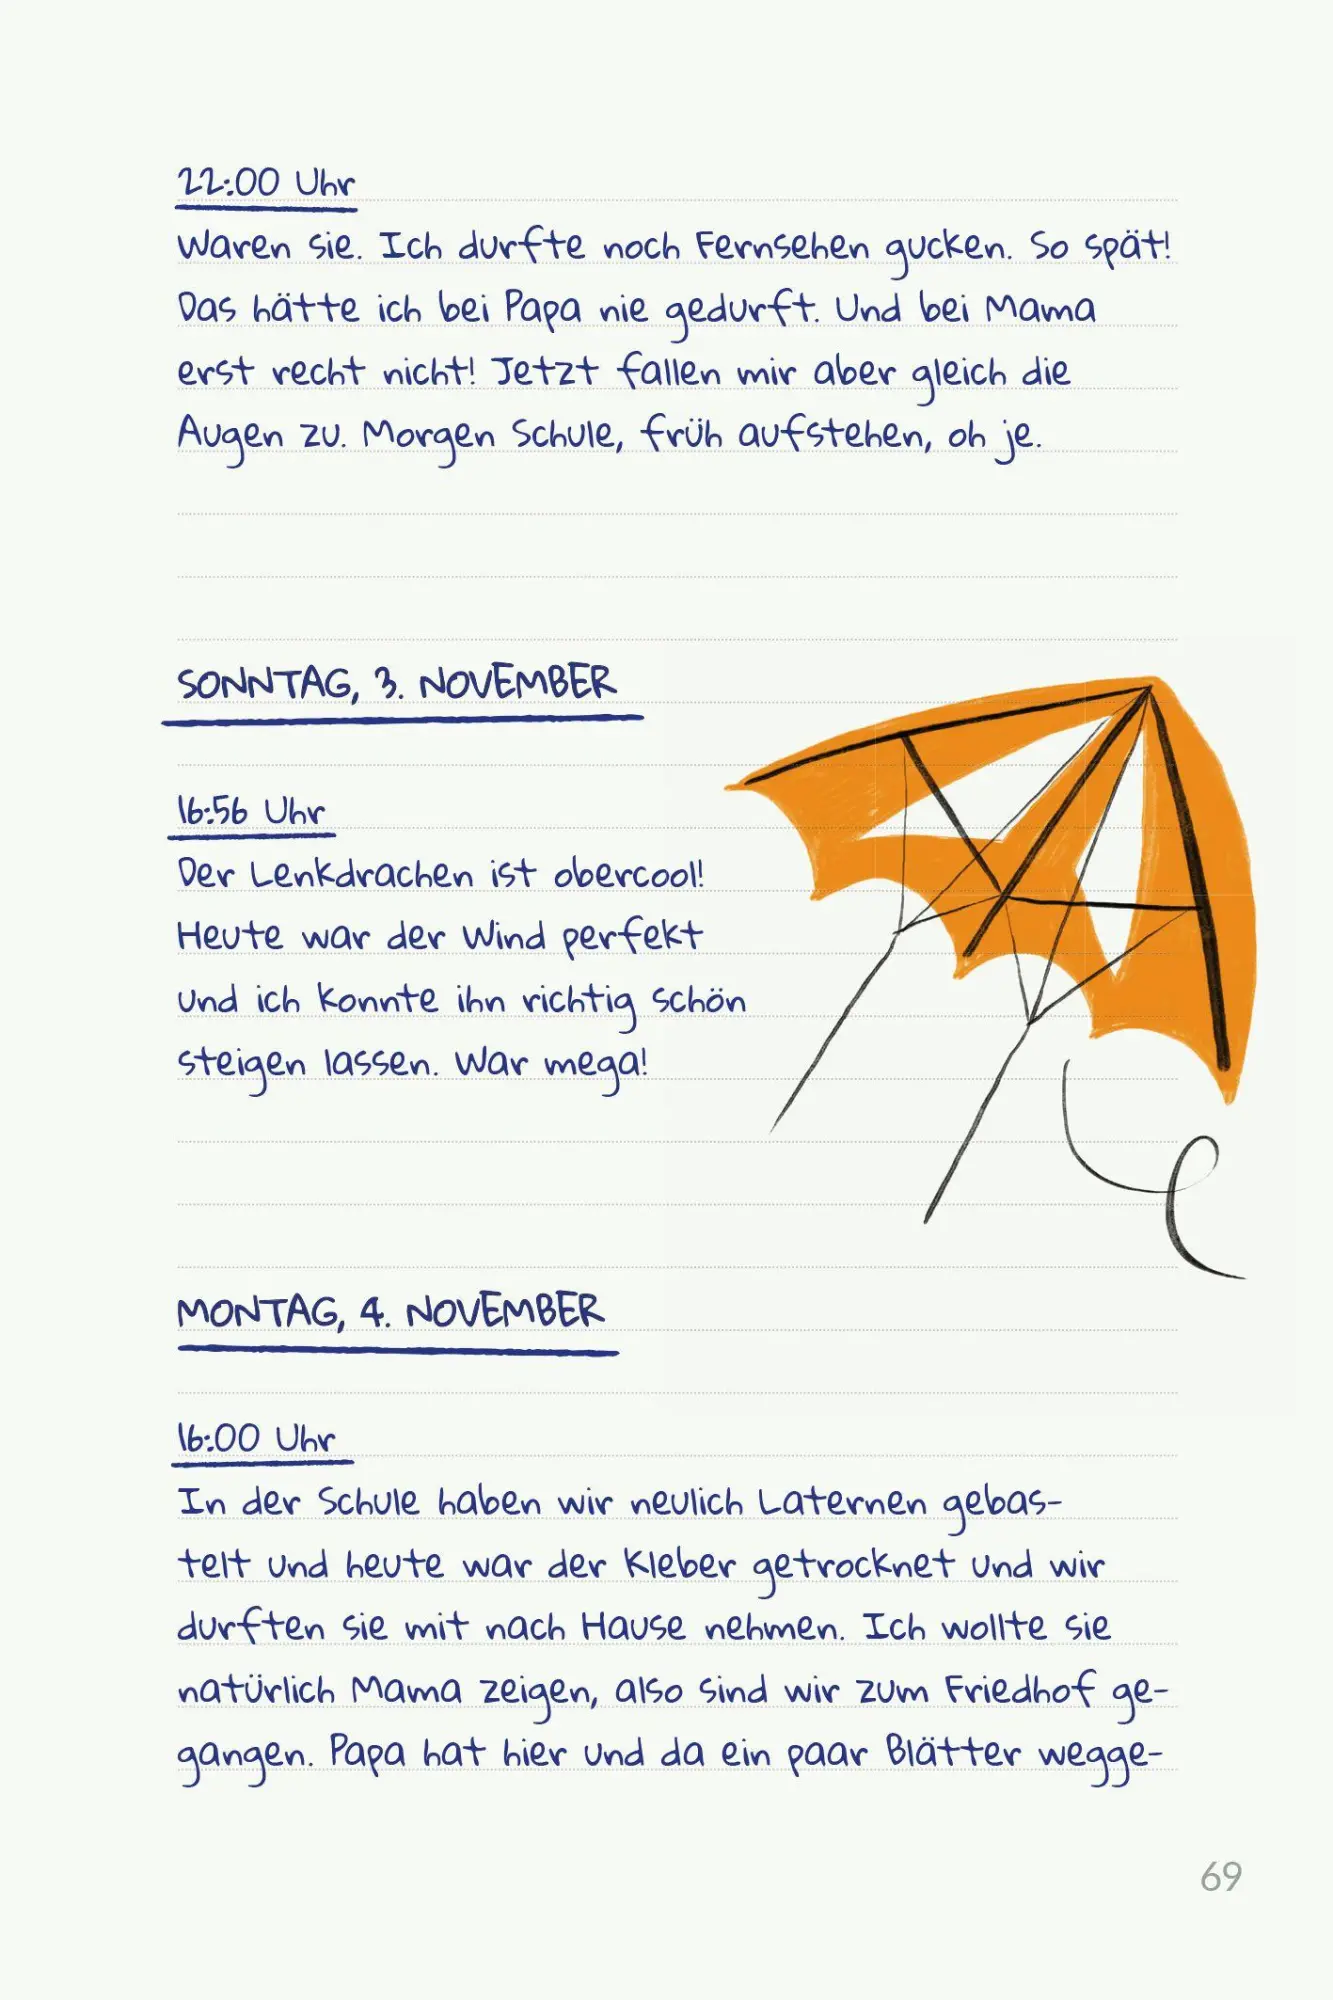 22:00 Uhr
Waren sie. Ich durfte noch Fernsehen gucken. So spät!
Das hätte ich bei Papa nie gedurft. Und bei Mama
erst recht nicht! Jetzt fallen mir aber gleich die
Augen zu. Morgen Schule, früh aufstehen, oh je.
SONNTAG, 3. NOVEMBER
16:56 Uhr
Der Lenkdrachen ist obercool!
Heute war der Wind perfekt
und ich konnte ihn richtig schön
steigen lassen. War mega!
MONTAG, 4. NOVEMBER
16:00 Uhr
In der Schule haben wir neulich Laternen gebas-
telt und heute war der Kleber getrocknet und wir
durften sie mit nach Hause nehmen. Ich wollte sie
natürlich Mama zeigen, also sind wir zum Friedhof ge-
gangen. Papa hat hier und da ein paar Blätter wegge-
69